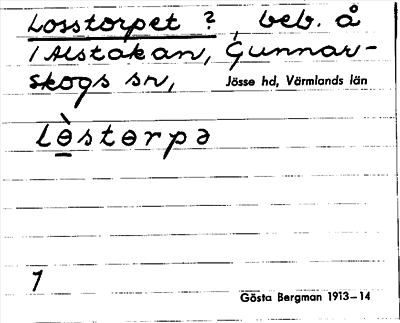 Losstorpet ? beb. å
1 Alstakan, Gunnar-
skogs sn, Jösse hd, Värmlands län
lɵ̀stɵrpə
1
Gösta Bergman 1913–14